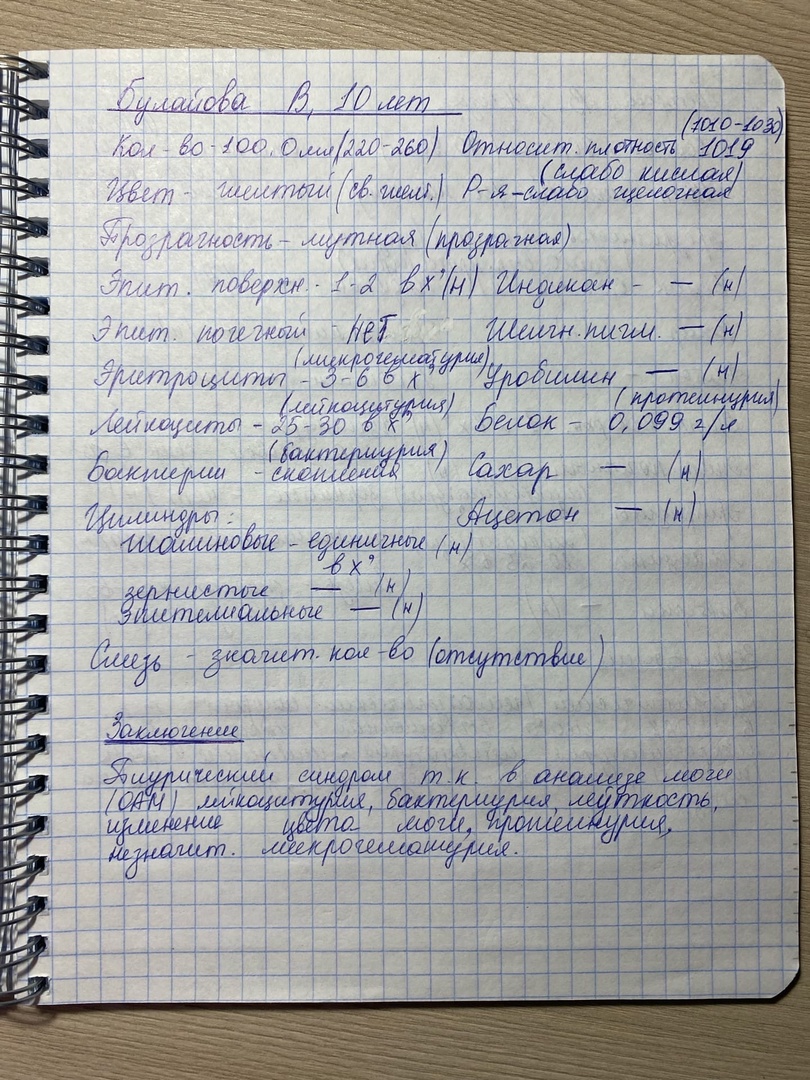 Булайова В, 10 лет
(1010-1030)
Кол-во-100,0 мл(220-260) Относит. плотность 1019
(слабо кислая)
Цвет - желтый (св. желт.) Р-я-слабо щелочная
Прозрачность - мутная (прозрачная)
Эпит. поверхн. - 1-2 в х°(н) Индикан - — (н)
Эпит. почечный - нет Желчн.пигм. — (н)
(микрогематурия)
Эритроциты - 3-6 в х° Уробилин — (н)
(лейкоцитурия) (протеинурия)
Лейкоциты - 25-30 в х° Белок - 0,099 г/л
(бактериурия)
Бактерии - скопления Сахар — (н)
Цилиндры: Ацетон — (н)
гиалиновые - единичные (н)
в х°
зернистые — (н)
эпителиальные — (н)
Слизь - значит. кол-во (отсутствие)
Заключение
Пиурический синдром т.к. в анализе мочи
(ОАМ) лейкоцитурия, бактериурия, мутность,
изменение цвета мочи, протеинурия,
незначит. микрогематурия.